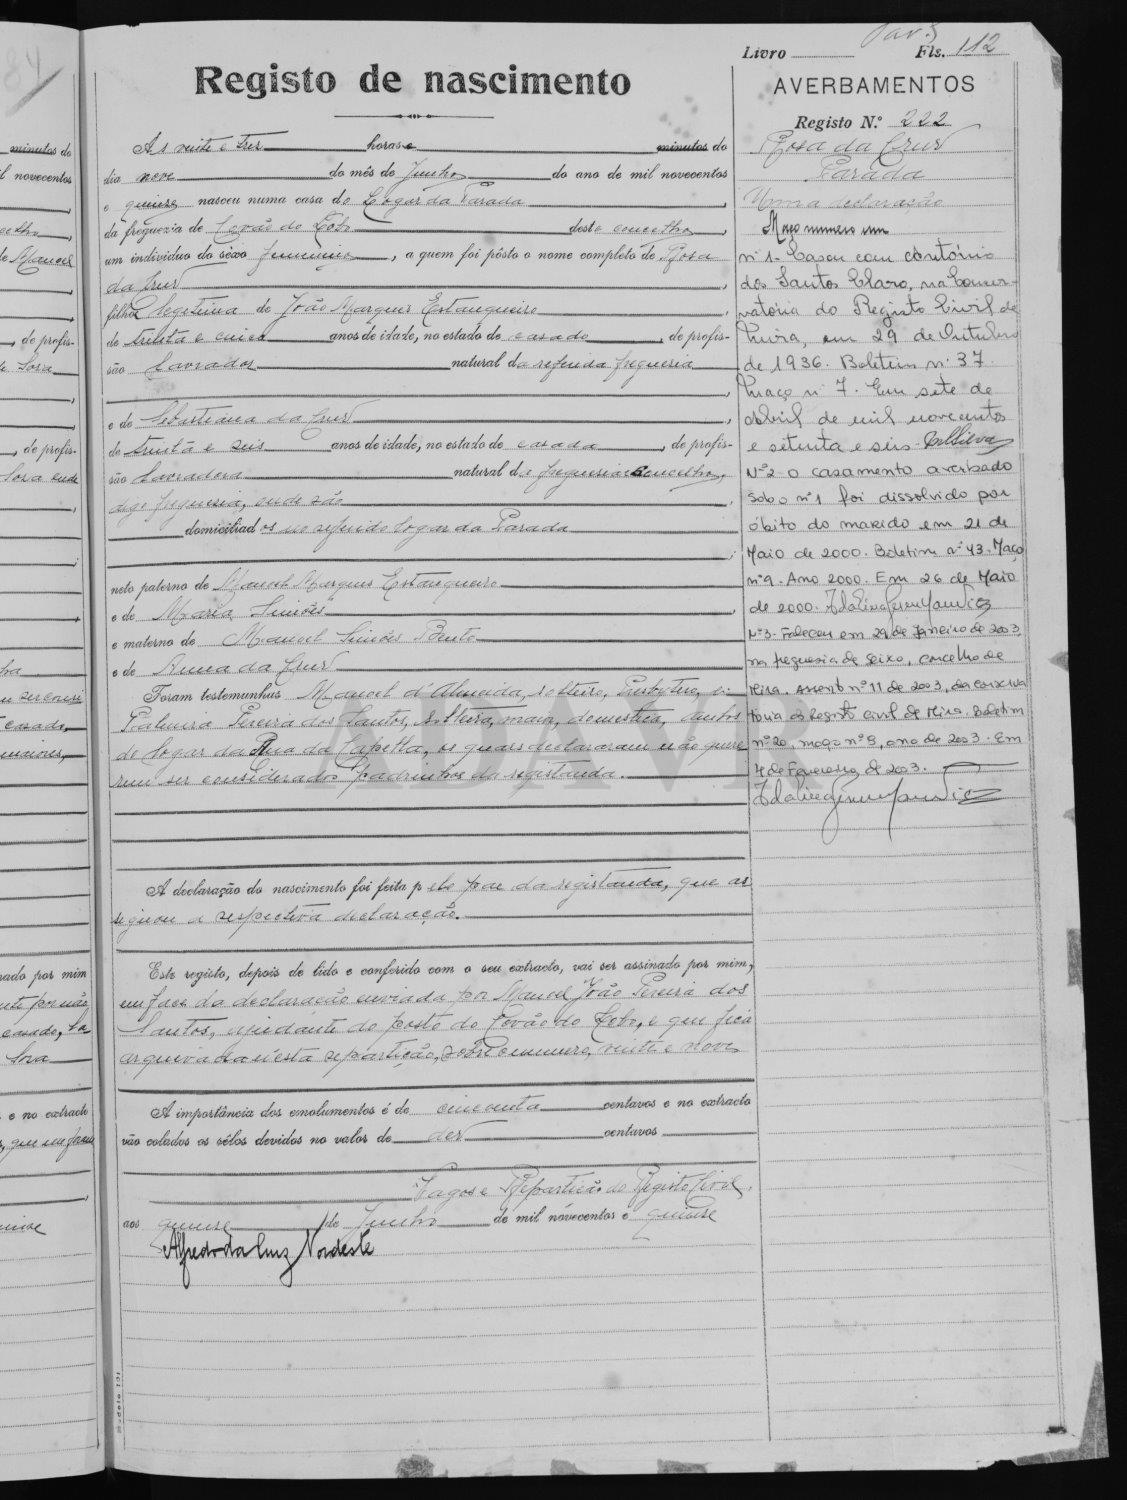 Livro Fls. 112
Registo de nascimento
AVERBAMENTOS
Registo N.º 222
Rosa da Cruz
Parada
Uma declaração
Maço numero um
Ás vinte e tres horas e minutos do
dia nove do mês de Junho do ano de mil novecentos
e quinze nasceu numa casa do Logar da Parada
da freguezia de Covão do Lobo deste concelho,
um individuo do séxo feminino, a quem foi pôsto o nome completo de Rosa
da Cruz
filha legitima de João Marques Estanqueiro
de trinta e cinco anos de idade, no estado de casado, de profis-
são Lavrador natural da referida freguesia
e de Sebastiana da Cruz
de trinta e seis anos de idade, no estado de casada, de profis-
são Lavradora natural da freguesia e concelho,
digo freguesia, onde são
domiciliados no referido logar da Parada
neto paterno de Manuel Marques Estanqueiro
e de Maria Simões
e materno de Manuel Simões Bento
e de Anna da Cruz
Foram testemunhas Manoel d'Almeida, solteiro, Presbytero, e
Palmira Pereira dos Santos, solteira, maior, domestica, ambos
do logar da Rua da Capella, os quais declararam não quere
rem ser considerados padrinhos da registanda.
A declaração do nascimento foi feita pelo pae da registanda, que as
signou a respectiva declaração.
Este registo, depois de lido e conferido com o seu extracto, vai ser assinado por mim,
em face da declaração enviada por Manuel João Pereira dos
Santos, ajudante do posto do Covão do Lobo, e que fica
arquivada n'esta repartição, sob o numero, vinte e nove
A importância dos emolumentos é de cincoenta centavos e no extracto
vão colados os sêlos devidos no valor de dez centavos
Vagos e Repartição do Registo Civil,
aos quinze de Junho de mil novecentos e quinze
Alfredo da Cruz Nordeste
nº 1 - Casou com António
dos Santos Claro, na Conser-
vatória do Registo Civil de
Mira, em 29 de Outubro
de 1936. Boletim nº 37
Maço nº 7. Em sete de
Abril de mil novecentos
e setenta e seis -
Nº 2 O casamento averbado
sob o nº 1 foi dissolvido por
óbito do marido em 21 de
Maio de 2000. Boletim nº 43. Maço
nº 9. Ano 2000. Em 26 de Maio
de 2000.
Nº 3 - Faleceu em 29 de Janeiro de 2003
na freguesia de Seixo, concelho de
Mira. Assento nº 11 de 2003, da Conserva
tória do Registo Civil de Mira. Boletim
nº 20, maço nº 9, ano de 2003. Em
4 de Fevereiro de 2003.
ADAVR